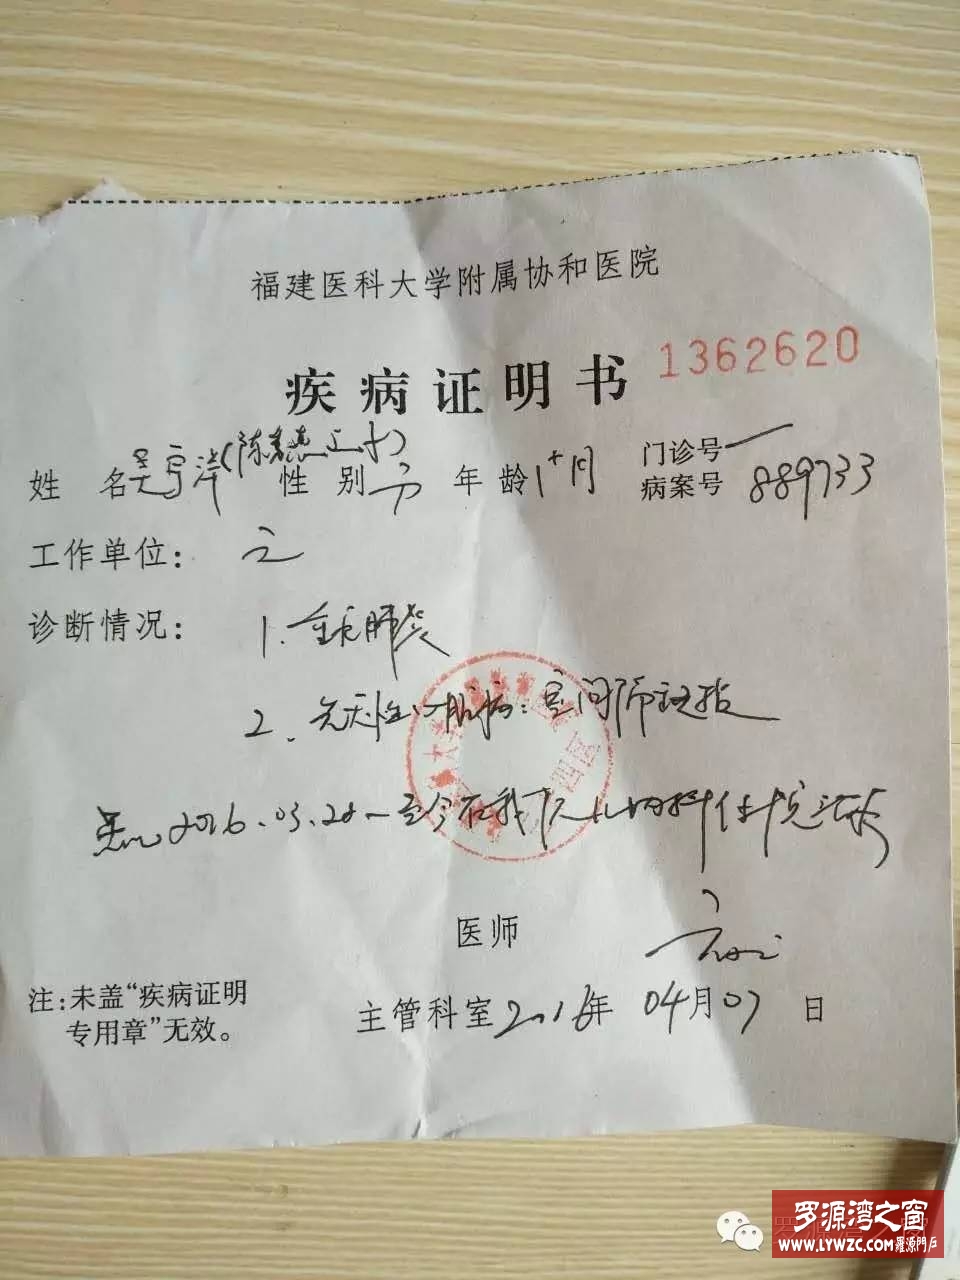 福建医科大学附属协和医院
疾病证明书 1362620
姓名 吴宇洋(陈 之子) 性别 年龄 1+月 门诊号 一
病案号 889733
工作单位:
诊断情况: 1. 重症肺炎
2. 先天性心脏病: 室间隔缺损
2016.03.28 至今在我院儿内科住院治疗
医师
注:未盖“疾病证明
专用章”无效。
主管科室 2016年 04月 07日
罗源湾之窗
WWW.LYWZC.COM 羅源門戶